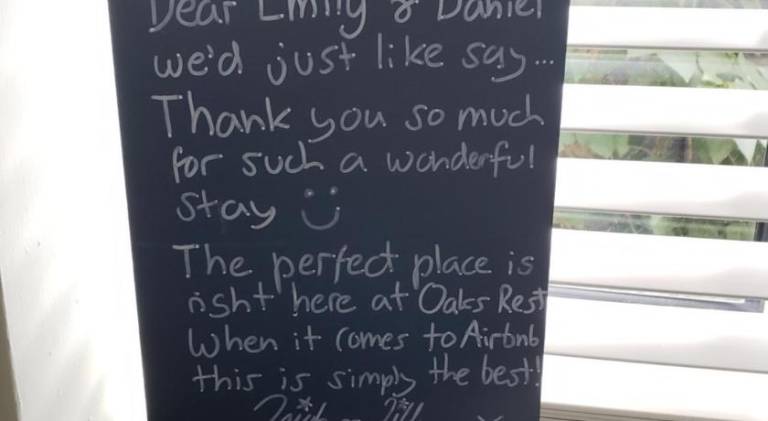 Dear Emily & Daniel
we'd just like say...
Thank you so much
for such a wonderful
stay
The perfect place is
right here at Oaks Rest
When it comes to Airbnb
this is simply the best!